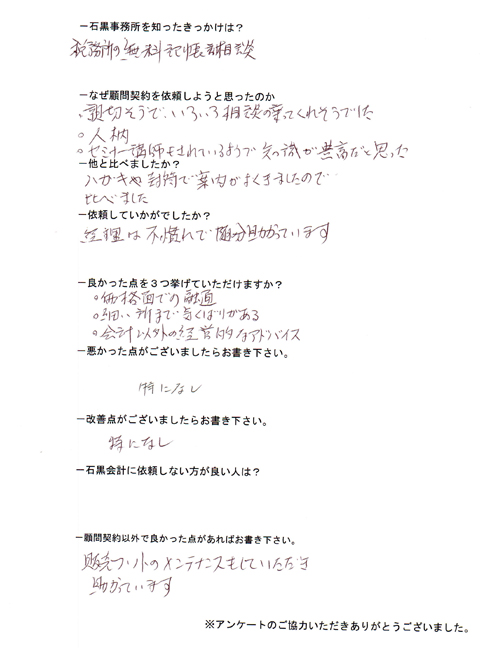 －石黒事務所を知ったきっかけは？
税務所の無料記帳相談
－なぜ顧問契約を依頼しようと思ったのか
○親切そうで、いろいろ相談の乗ってくれそうでした
○人柄
○セミナー講師もされているようで知識が豊富だと思った
－他と比べましたか？
ハガキや封筒で案内がよくきましたので
比べました
－依頼していかがでしたか？
経理は不慣れで随分助かっています
－良かった点を３つ挙げていただけますか？
○価格面での融通
○細い所まで気くばりがある
○会計以外の経営的なアドバイス
－悪かった点がございましたらお書き下さい。
特になし
－改善点がございましたらお書き下さい。
特になし
－石黒会計に依頼しない方が良い人は？
－顧問契約以外で良かった点があればお書き下さい。
販売ソフトのメンテナンスもしていただき
助かっています
※アンケートのご協力いただきありがとうございました。